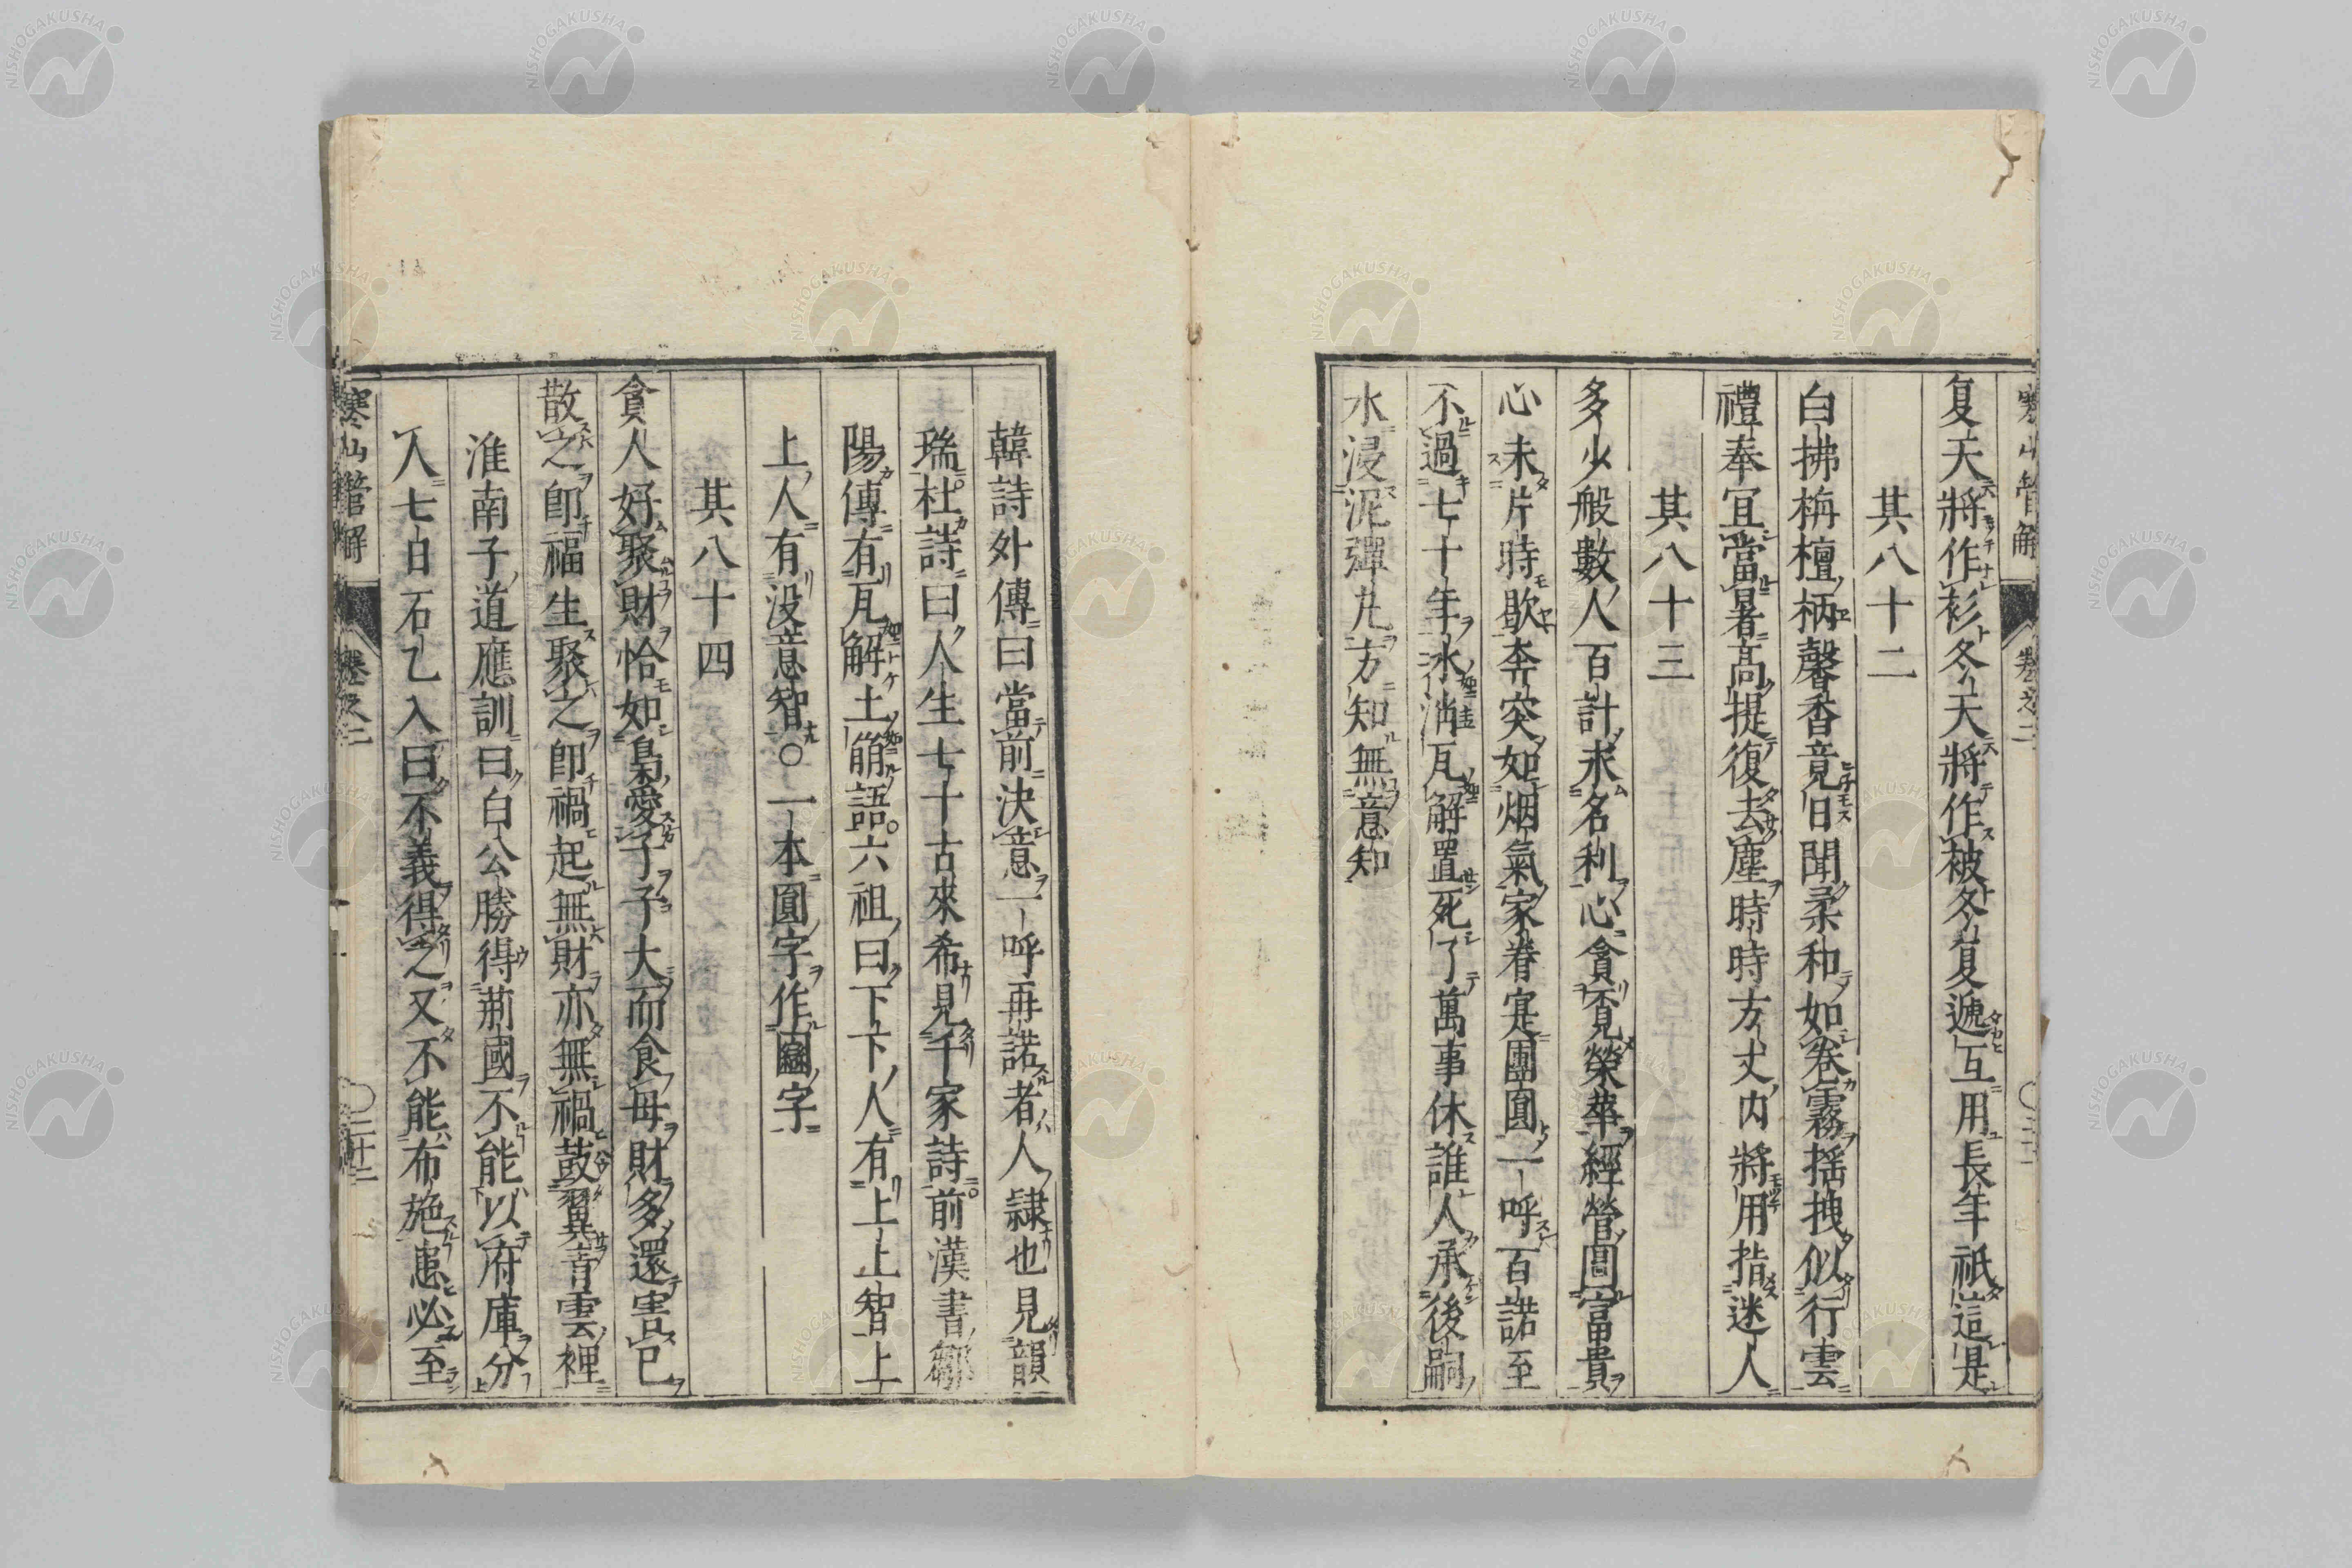 夏天將作衫冬天將作被冬夏遞互用長年祇這是
其八十二
白拂栴檀柄馨香竟日聞柔和如卷霧搖拽似行雲
禮奉宜當暑高提復去塵時時方丈內將用指迷人
其八十三
多少般數人百計求名利心貪覓榮華經營圖富貴
心未片時歇奔突如烟氣家眷寔團圓一呼百諾至
不過七十年冰消瓦解置死了萬事休誰人承後嗣
水浸泥彈丸方知無意知
韓詩外傳曰當前決意一呼再諾者人隷也見韻
瑞杜詩曰人生七十古來希見千家詩前漢書鄒
陽傳有瓦解土崩語六祖曰下下人有上上智上
上人有没意智○一本圓字作圝字
其八十四
貪人好聚財恰如梟愛子子大而食母財多還害己
散之即福生聚之即禍起無財亦無禍鼓翼青雲裡
淮南子道應訓曰白公勝得荊國不能以府庫分
人七日石乙入曰不義得之又不能布施患必至
寒山管解 卷之二 ○二十二
NISHOGAKUSHA